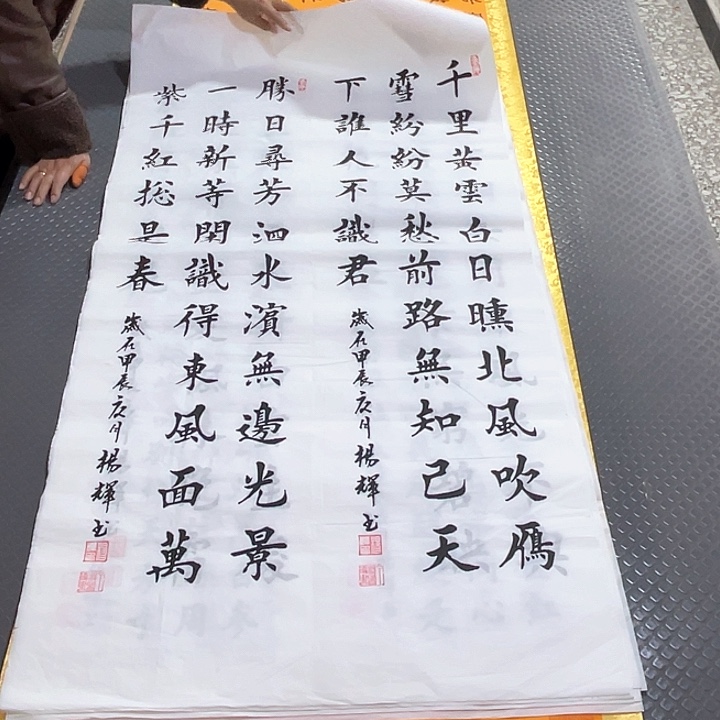 千里黄雲白日曛北風吹鴈
雪紛紛莫愁前路無知己天
下誰人不識君
歲在甲辰月楊輝书
勝日尋芳泗水濱無邊光景
一時新等閑識得東風面萬
紫千紅摠是春
歲在甲辰月楊輝书